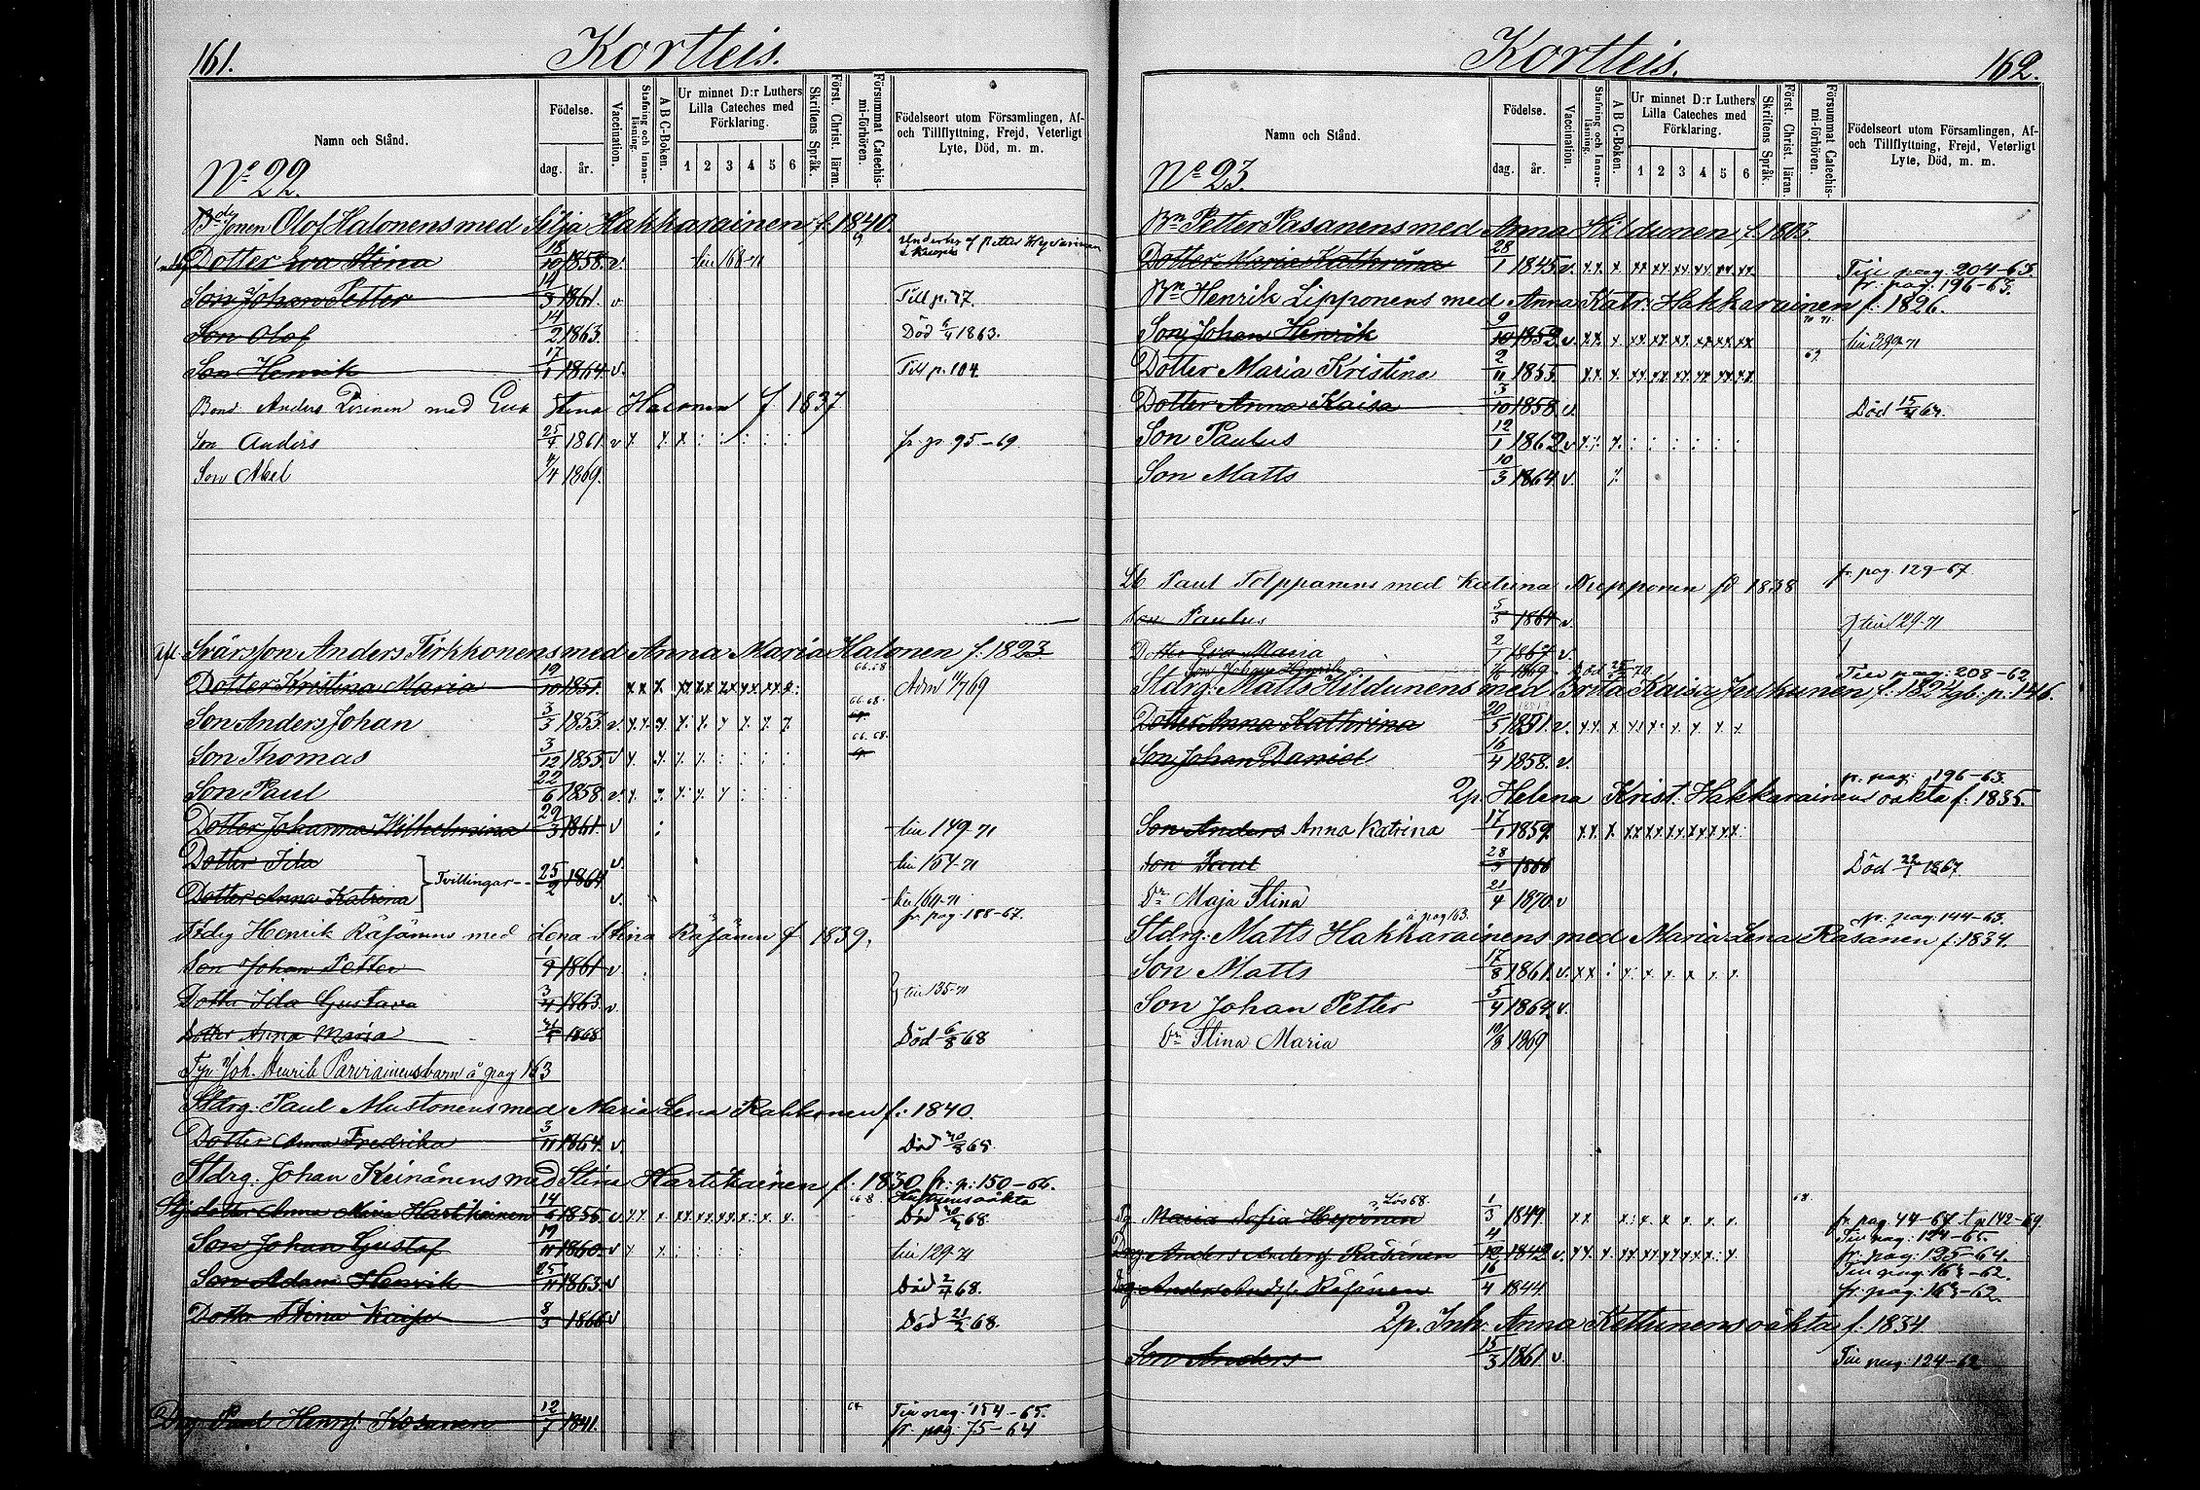 161.
Kortteis.
Namn och Stånd.
Födelse.
dag.
år.
Vaccination.
Stafning och Innan-läsning.
A B C-Boken.
Ur minnet D:r Luthers Lilla Cateches med Förklaring.
1 2 3 4 5 6
Skriftens Språk.
Först. Christ. läran.
Försummat Catechis-mi-förhören.
Födelseort utom Församlingen, Af- och Tillflyttning, Frejd, Veterligt Lyte, Död, m. m.
No 22.
Olof Halonens med Silja Hakkarainen f. 1840.
Dotter Eva Stina 18/10 1858. v.
Son Johan Petter 14/3 1861. v Till p. 77.
Son Olof 14/2 1863. Död 6/4 1863.
Son Henrik 17/1 1864 v. Till p. 104
Bond. Anders Pirinen med Eva Stina Halonen f 1837
Son Anders 25/4 1861 v fr. p. 95-69
Son Abel 4/4 1869.
Anders Tirkkonens med Anna Maria Halonen f. 1823
66.68
Dotter Kristina Maria 19/10 1851. Adm 11/7 69
Son Anders Johan 3/3 1853. v. 66.68.
Son Thomas 3/12 1855 v 66.68.
Son Paul 22/6 1858 v.
Dotter Johanna Wilhelmina 29/3 1861. v till 149-71
Dotter Ida v. till 164-71
Tvillingar 25/2 1864
Dotter Anna Katrina v. till 164-71
fr. pag. 188-67.
Stdrg Henrik Räsänens med Lena Stina Räsänen f 1839.
Son Johan Petter 1/9 1861 v
Dotter Ida Gustava 3/4 1863. v. till 135-71
Dotter Anna Maria 1868 Död 6/8 68
Joh. Henrik Parviainens barn å pag 163
Stdrg: Paul Mustonens med Maria Lena Rahkonen f. 1840.
Dotter Anna Fredrika 3/11 1864. v. Död 20/8 65.
Stdrg: Johan Keinänens med Stina Hartikainen f. 1830 fr. p: 150-66.
Hustruns oäkta
dotter Anna Maria Hartikainen 14/6 1855 v Död 68.
Son Johan Gustaf 19/11 1860. v till 129-71
Son Adam Henrik 25/11 1863. v Död 2/4 68.
Dotter Stina Kaisa 8/3 1866 v Död 21/2 68.
Drg. Paul Henrs: Kosunen 12/7 1841. Till pag. 154-65.
fr. pag. 75-64
Kortteis.
162.
Namn och Stånd.
Födelse.
dag.
år.
Vaccination.
Stafning och Innan-läsning.
A B C-Boken.
Ur minnet D:r Luthers Lilla Cateches med Förklaring.
1 2 3 4 5 6
Skriftens Språk.
Först. Christ. läran.
Försummat Catechis-mi-förhören.
Födelseort utom Församlingen, Af- och Tillflyttning, Frejd, Veterligt Lyte, Död, m. m.
No 23.
Bn Petter Pasanens med Anna Hildunen f. 1803.
Dotter Maria Kathrina 28/1 1845 v. Till pag. 204-63
fr. pag. 196-63.
Bn Henrik Lipponens med Anna Katr: Hakkarainen f. 1826.
Son Johan Henrik 9/10 1852. v.
Dotter Maria Kristina 2/11 1855.
Dotter Anna Kaisa 3/10 1858. v.
Son Paulus 12/1 1862 v
Son Matts 10/3 1864 v.
Paul Tolppanens med Katrina Nupponen fd 1838 fr. pag. 129-67
Son Paulus 5/3 1864 v. till 129-71
Dotter Eva Maria 2/7 1867 v.
Son Johan Henrik 1869
Till pag: 208-62
Stdrg: Matts Hildunens med Brita Kaisa Jeskanen f. 1824 p: 146.
Dotter Anna Kathrina 20/5 1851. v.
Son Johan Daniel 16/4 1858. v.
fr. pag: 196-63.
2p. Helena Krist. Hakkarainens oäkta f. 1835.
Son Anders Anna Katrina 17/1 1859.
Son Paul 28/9 1866 Död 22/1 1867.
Dr Maja Stina 21/4 1870 v
å pag 163. fr. pag: 144-63.
Stdrg: Matts Hakkarainens med Maria Lena Räsänen f. 1834.
Son Matts 17/8 1861. v.
Son Johan Petter 5/4 1864. v.
Dr Stina Maria 10/3 1869
Lös 68.
Maria Sofia Hyvönen 1/3 1849. fr. pag. 44-67
Till pag. 124-65
Drg. Anders Anders. Räsänen 4/12 1842 v. fr. pag: 125-64.
Till pag: 163-62.
Drg. Anders Andss. Räsänen 16/4 1844 fr. pag: 163-62.
2p. Inh. Anna Kettunens oäkta f. 1834
Son Anders 15/3 1861 v. Till pag: 124-62